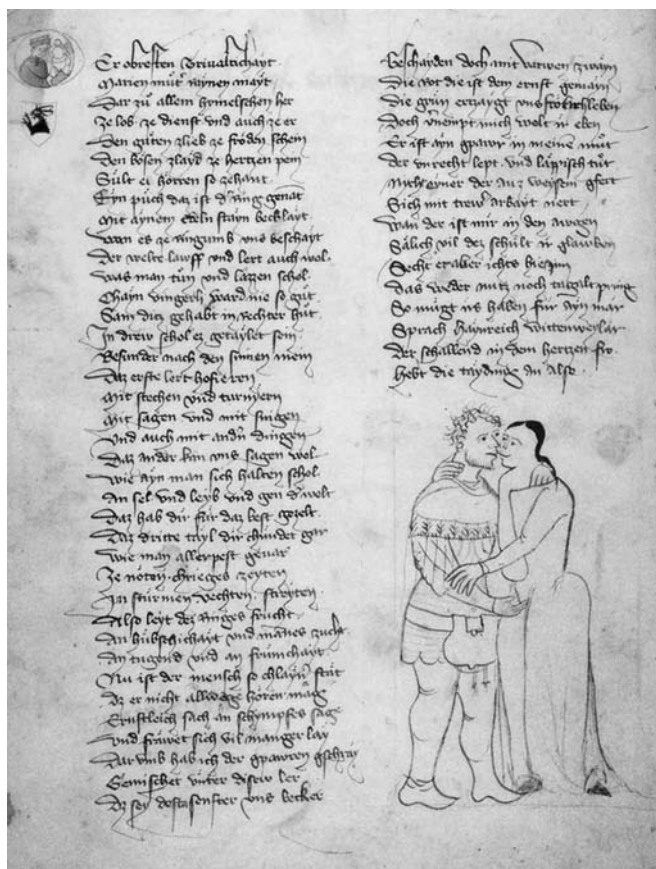 Er obresten Trivaltichayt
Marien mütˀ raynen mayt
Dar zů allem himelschen her
Ze lob ze dienst vnd auch ze er
Den gůten zlieb ze fröden schein
Den bösen zlayd ze hertzen pein
Sült es hörren so zehant
Eyn půch daz ist dˀ ring genāt
Mit aynem edeln stayn becklayt
Wan es ze ringumb vns beschayt
Der welte lawff vnd lert auch wol
was man tůn vnd lazzen schol
Chayn vingerli ward nie so gůt
Sam ditz gehabt in rechter hůt
In drew schol ez getaylet sein
Besunder nach den sinnen mein
Daz erste lert hofieren
Mit stechen vnd turnyern
Mit sagen vnd mit singen
Vnd auch mit andn̄ dingen
Daz ander kan vns sagen wol
wie ayn man sich halten schol
An sel vnd leyb vnd gen dˀ welt
Daz hab dir für daz best gezelt
Daz dritte tayl dir chündet gar
Wie man allerpest geuar
Ze nöten chrieges zeyten
In stürmen vechten streyten
Also leyt dez ringes frucht
An hübschichayt vnd mānes zucht
An tugend vnd an frümchayt
Nu ist der mensch so chlaynˀ stät
Dz er nicht allwege hören mag
Ernstleich sach an schympfes sage
Vnd fräwet sich vil manger lay
Dar vmb hab ich der gpawren gschray
Gemischet vnter disew ler
Dz sey senfter vns becker
Beschayden doch mit varwen zwayn
Die rot die ist dem ernst gemayn
Die grün ertzaygt vns
Doch vernempt mich welt ir eben
Er ist ayn gpawr in meinē můt
der vnrecht lept vnd läppisch tůt
Nicht eyner der auz weysem gfert
Sich mit trewˀ arbayt nert
Wan der ist mir in den awgen
Sälich vil dez schült ir glawben
Secht er aber ichts hie inn
Das weder nutz noch tagalt pring
So mügt irs haben für ayn mär
Sprach Haynreich Wittenweylär
Der schallend in dem hertzen fro
Hebt die tayding an also